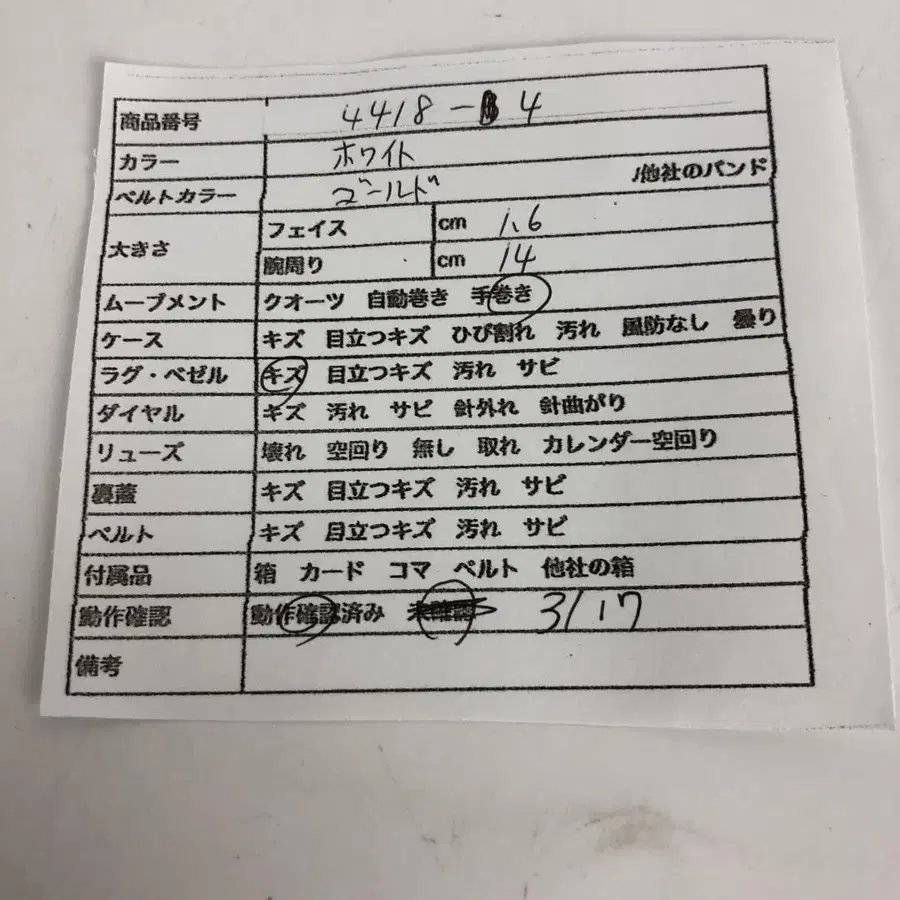 商品番号 4418-4
カラー ホワイト
ベルトカラー ゴールド /他社のバンド
大きさ フェイス cm 1.6
腕周り cm 14
ムーブメント クオーツ 自動巻き 手巻き
ケース キズ 目立つキズ ひび割れ 汚れ 風防なし 曇り
ラグ・ベゼル キズ 目立つキズ 汚れ サビ
ダイヤル キズ 汚れ サビ 針外れ 針曲がり
リューズ 壊れ 空回り 無し 取れ カレンダー空回り
裏蓋 キズ 目立つキズ 汚れ サビ
ベルト キズ 目立つキズ 汚れ サビ
付属品 箱 カード コマ ベルト 他社の箱
動作確認 動作確認済み 未確認 3/17
備考